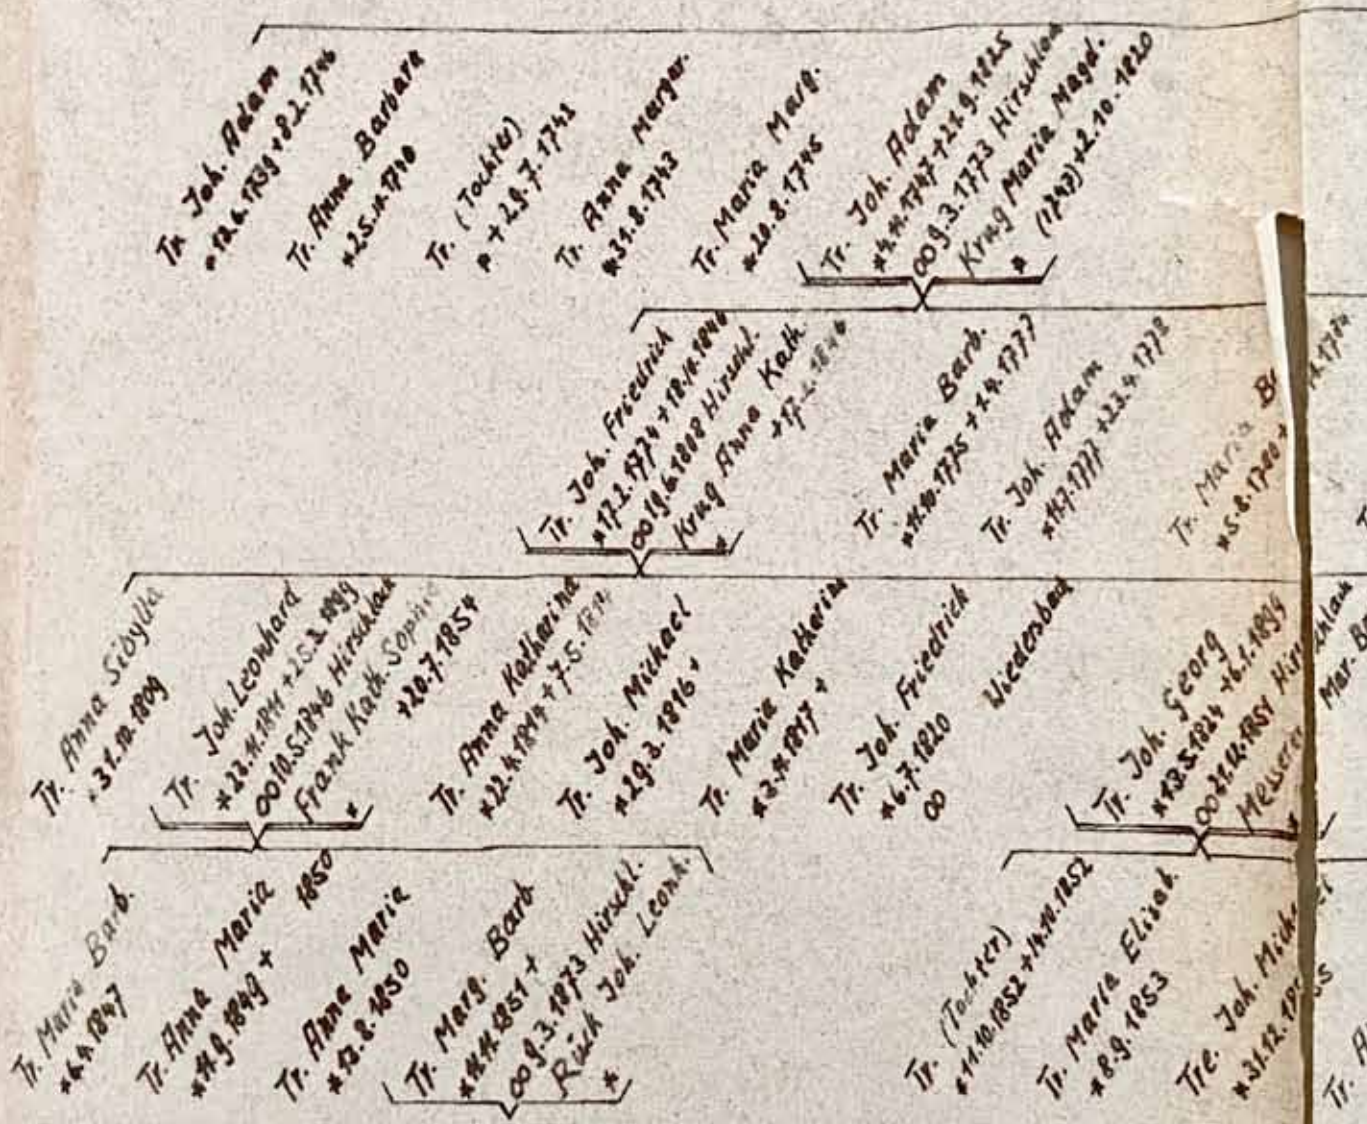 Tr. Joh. Adam
*12.6.1739 +8.2.1746
Tr. Anna Barbara
*25.11.1740
Tr. (Tochter)
* + 29.7.1742
Tr. Anna Margar.
*31.8.1743
Tr. Maria Marg.
*20.8.1745
Tr. Joh. Adam
*4.11.1747 +21.9.1825
oo 9.3.1773 Hirschlan
Krug Maria Magd.
* (1747) +2.10.1820
Tr. Joh. Friedrich
*17.2.1774 +18.10.1846
oo 19.6.1808 Hirschl.
Krug Anna Kath.
* +17.2.1846
Tr. Maria Barb.
*11.10.1775 +2.4.1777
Tr. Joh. Adam
*11.7.1777 +23.4.1778
Tr. Maria
*5.8.1780 +
.1784
Tr. Anna Sibylla
*31.10.1809
Tr. Joh. Leonhard
*23.11.1811 +25.2.1899
oo 10.5.1846 Hirschlan
Frank Kath. Sophie
* +20.7.1854
Tr. Anna Katharina
*22.4.1814 +7.5.1814
Tr. Joh. Michael
*29.3.1816 +
Tr. Maria Katharina
*3.11.1817 +
Tr. Joh. Friedrich
*6.7.1820
oo Wiedenbad
Tr. Joh. Georg
*13.5.1824 +6.1.1899
oo 21.12.1851 Hirschlan
Messerer Mar.
*
Tr. Maria Barb.
*6.4.1847
Tr. Anna Maria
*11.9.1849 + 1850
Tr. Anna Maria
*12.8.1850
Tr. Marg. Barb
*11.11.1851 +
oo 9.3.1873 Hirschl.
Rück Joh. Leonh.
*
Tr. (Tochter)
*11.10.1852 +14.10.1852
Tr. Maria Elisab.
*8.9.1853
Tre. Joh. Mich.
*31.12.18
Tr. A